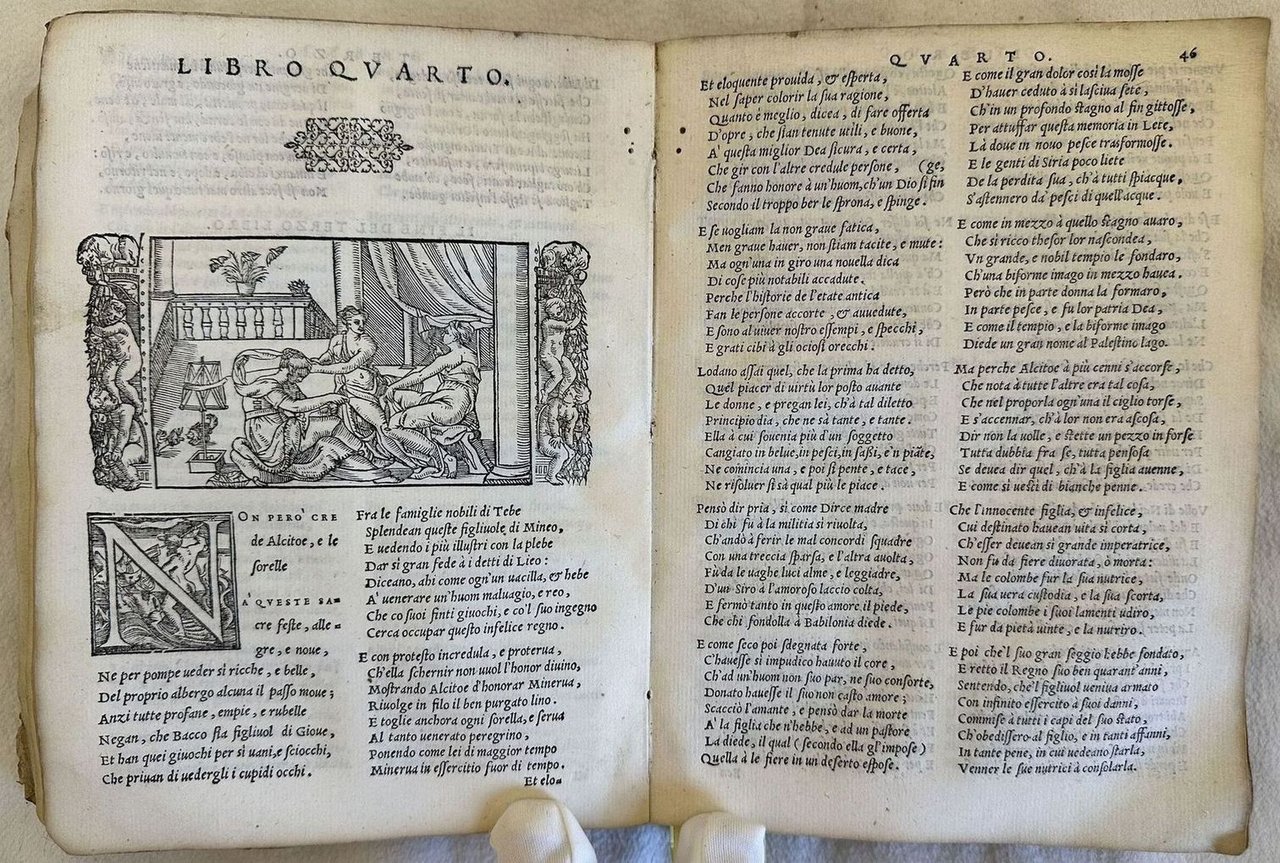 LIBRO QVARTO.
NON PERO' CRE
de Alcitoe, e le
sorelle
A' QVESTE SA-
cre feste, alle-
gre, e noue,
Ne per pompe ueder sì ricche, e belle,
Del proprio albergo alcuna il passo moue;
Anzi tutte profane, empie, e rubelle
Negan, che Bacco sia figliuol di Gioue,
Et han quei giuochi per sì uani, e sciocchi,
Che priuan di uedergli i cupidi occhi.
Fra le famiglie nobili di Tebe
Splendean queste figliuole di Mineo,
E uedendo i più illustri con la plebe
Dar sì gran fede à i detti di Lieo:
Diceano, ahi come ogn'un uacilla, & hebe
A' uenerare un'huom maluagio, e reo,
Che co suoi finti giuochi, e co'l suo ingegno
Cerca occupar questo infelice regno.
E con protesto incredula, e proterua,
Ch'ella schernir non uuol l'honor diuino,
Mostrando Alcitoe d'honorar Minerua,
Riuolge in filo il ben purgato lino.
E toglie anchora ogni sorella, e serua
Al tanto uenerato peregrino,
Ponendo come lei di maggior tempo
Minerua in essercitio fuor di tempo.
Et elo-
QVARTO. 46
Et eloquente prouida, & esperta,
Nel saper colorir la sua ragione,
Quanto è meglio, dicea, di fare offerta
D'opre, che sian tenute utili, e buone,
A' questa miglior Dea sicura, e certa,
Che gir con l'altre credule persone, (ge,
Che fanno honore à un'huom, ch'un Dio si fin
Secondo il troppo ber le sprona, e spinge.
E se uogliam la non graue fatica,
Men graue hauer, non stiam tacite, e mute:
Ma ogn'una in giro una nouella dica
Di cose più notabili accadute.
Perche l'historie de l'etate antica
Fan le persone accorte, & auuedute,
E sono al uiuer nostro essempi, e specchi,
E grati cibi à gli ociosi orecchi.
Lodano assai quel, che la prima ha detto,
Quel piacer di uirtù lor posto auante
Le donne, e pregan lei, ch'à tal diletto
Principio dia, che ne sà tante, e tante.
Ella à cui souenia più d'un soggetto
Cangiato in belue, in pesci, in sassi, e'n piate,
Ne comincia una, e poi si pente, e tace,
Ne risoluer si sà qual più le piace.
Pensò dir pria, sì come Dirce madre
Di chi fu à la militia sì riuolta,
Ch'andò à ferir le mal concordi squadre
Con una treccia sparsa, e l'altra auolta,
Fù da le uaghe luci alme, e leggiadre,
D'un Siro à l'amoroso laccio colta,
E fermò tanto in questo amore il piede,
Che chi fondolla à Babilonia diede.
E come seco poi sdegnata forte,
C'hauesse sì impudico hauuto il core,
Ch'ad un'huom non suo par, ne suo consorte,
Donato hauesse il suo non casto amore;
Scacciò l'amante, e pensò dar la morte
A' la figlia che n'hebbe, e ad un pastore
La diede, il qual (secondo ella gl'impose)
Quella à le fiere in un deserto espose.
E come il gran dolor così la mosse
D'hauer ceduto à sì lasciua sete,
Ch'in un profondo stagno al fin gittosse,
Per attuffar questa memoria in Lete,
Là doue in nouo pesce trasformosse.
E le genti di Siria poco liete
De la perdita sua, ch'à tutti spiacque,
S'astennero da' pesci di quell'acque.
E come in mezzo à quello stagno auaro,
Che sì ricco thesor lor nascondea,
Vn grande, e nobil tempio le fondaro,
Ch'una biforme imago in mezzo hauea.
Però che in parte donna la formaro,
In parte pesce, e fu lor patria Dea,
E come il tempio, e la biforme imago
Diede un gran nome al Palestino lago.
Ma perche Alcitoe à più cenni s'accorse,
Che nota à tutte l'altre era tal cosa,
Che nel proporla ogn'una il ciglio torse,
E s'accennar, ch'à lor non era ascosa,
Dir non la uolle, e stette un pezzo in forse
Tutta dubbia fra se, tutta pensosa
Se deuea dir quel, ch'à la figlia auenne,
E come si uestì di bianche penne.
Che l'innocente figlia, & infelice,
Cui destinato hauean uita sì corta,
Ch'esser deuean sì grande imperatrice,
Non fu da fiere diuorata, ò morta:
Ma le colombe fur la sua nutrice,
La sua uera custodia, e la sua scorta,
Le pie colombe i suoi lamenti udiro,
E fur da pietà uinte, e la nutriro.
E poi che'l suo gran seggio hebbe fondato,
E retto il Regno suo ben quarant'anni,
Sentendo, che'l figliuol ueniua armato
Con infinito essercito à suoi danni,
Commise à tutti i capi del suo stato,
Ch'obedissero al figlio, e in tanti affanni,
In tante pene, in cui uedeano starla,
Venner le sue nutrici à consolarla.